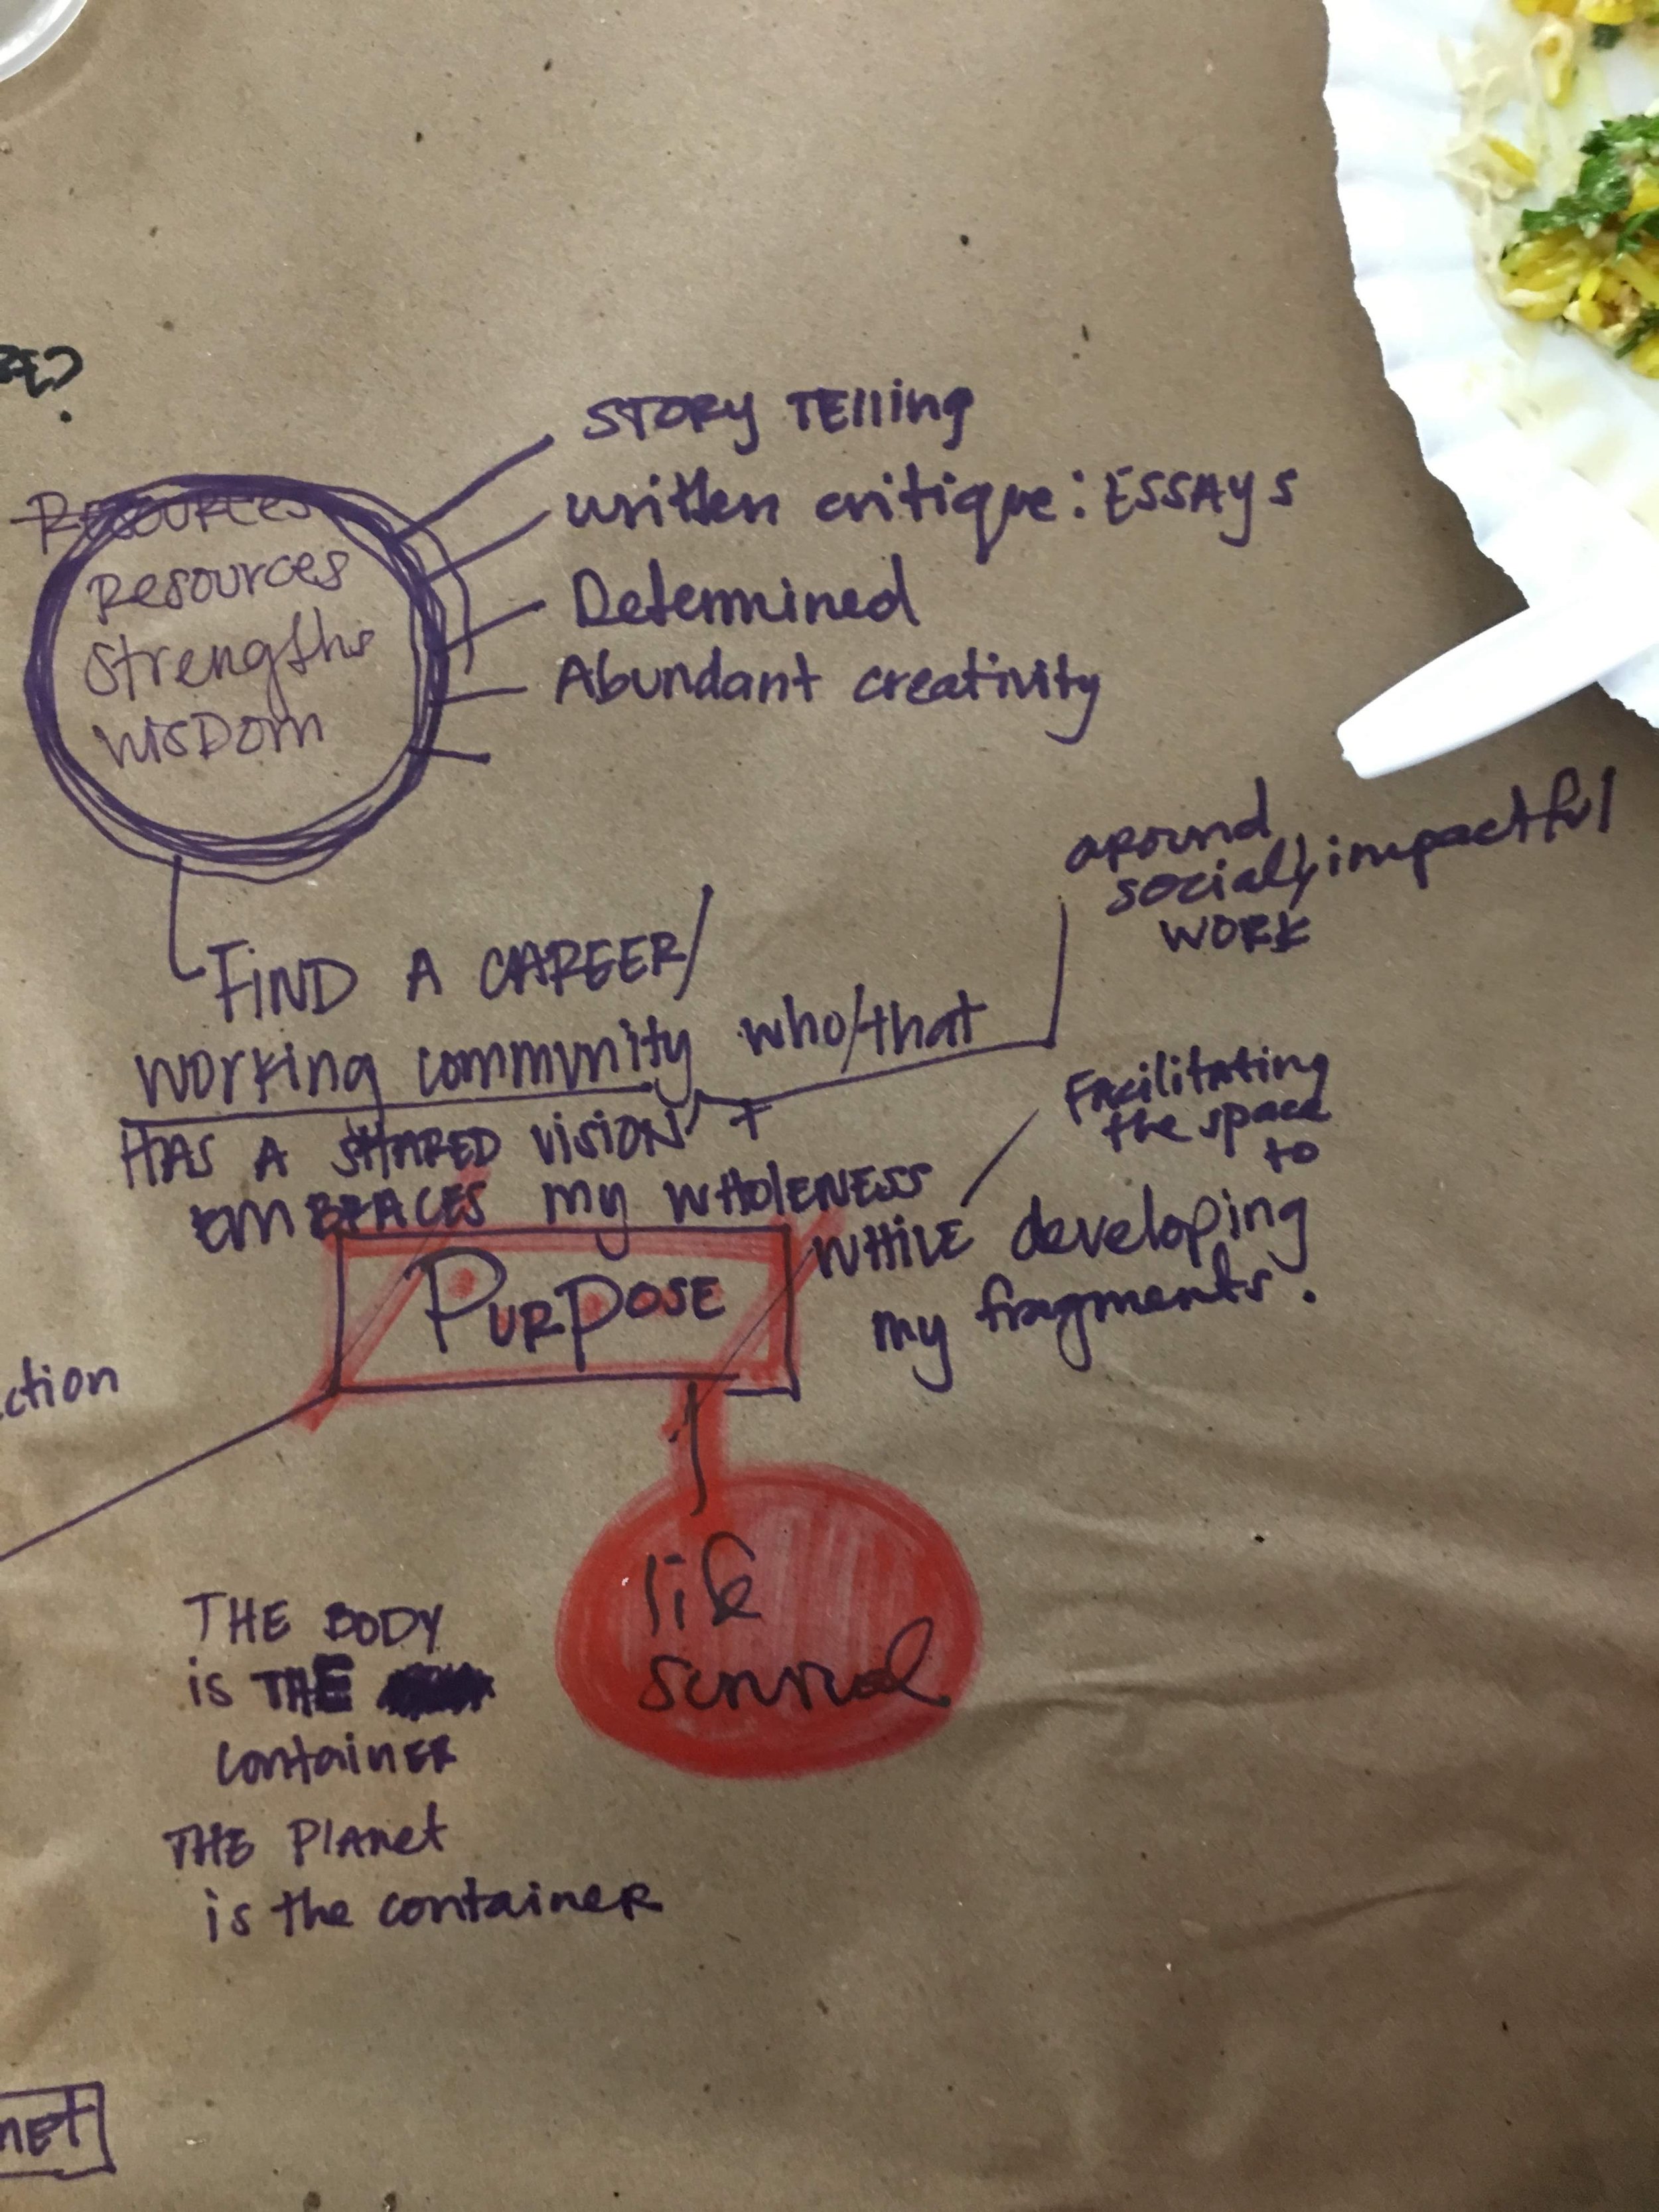 STORY TELLING
written critique: ESSAYS
Determined
Abundant creativity
Resources
Resources
Strengths
WISDOM
around
social/impactful
WORK
FIND A CAREER/
working community who/that
HAS A SHARED VISION +
EMBRACES my WHOLENESS
Facilitating
the space
to
WHILE developing
my fragments.
PURPOSE
ction
life
survival
THE BODY
is THE
container
THE Planet
is the container
net